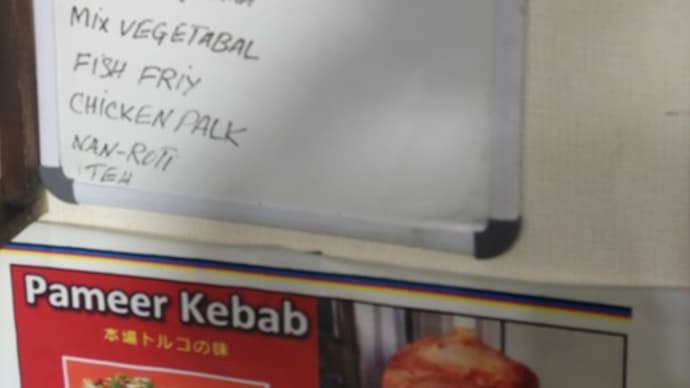 Mix VEGETABAL
FISH FRIY
CHICKEN PALK
NAN-ROTI
TEH
Pameer Kebab
本場トルコの味